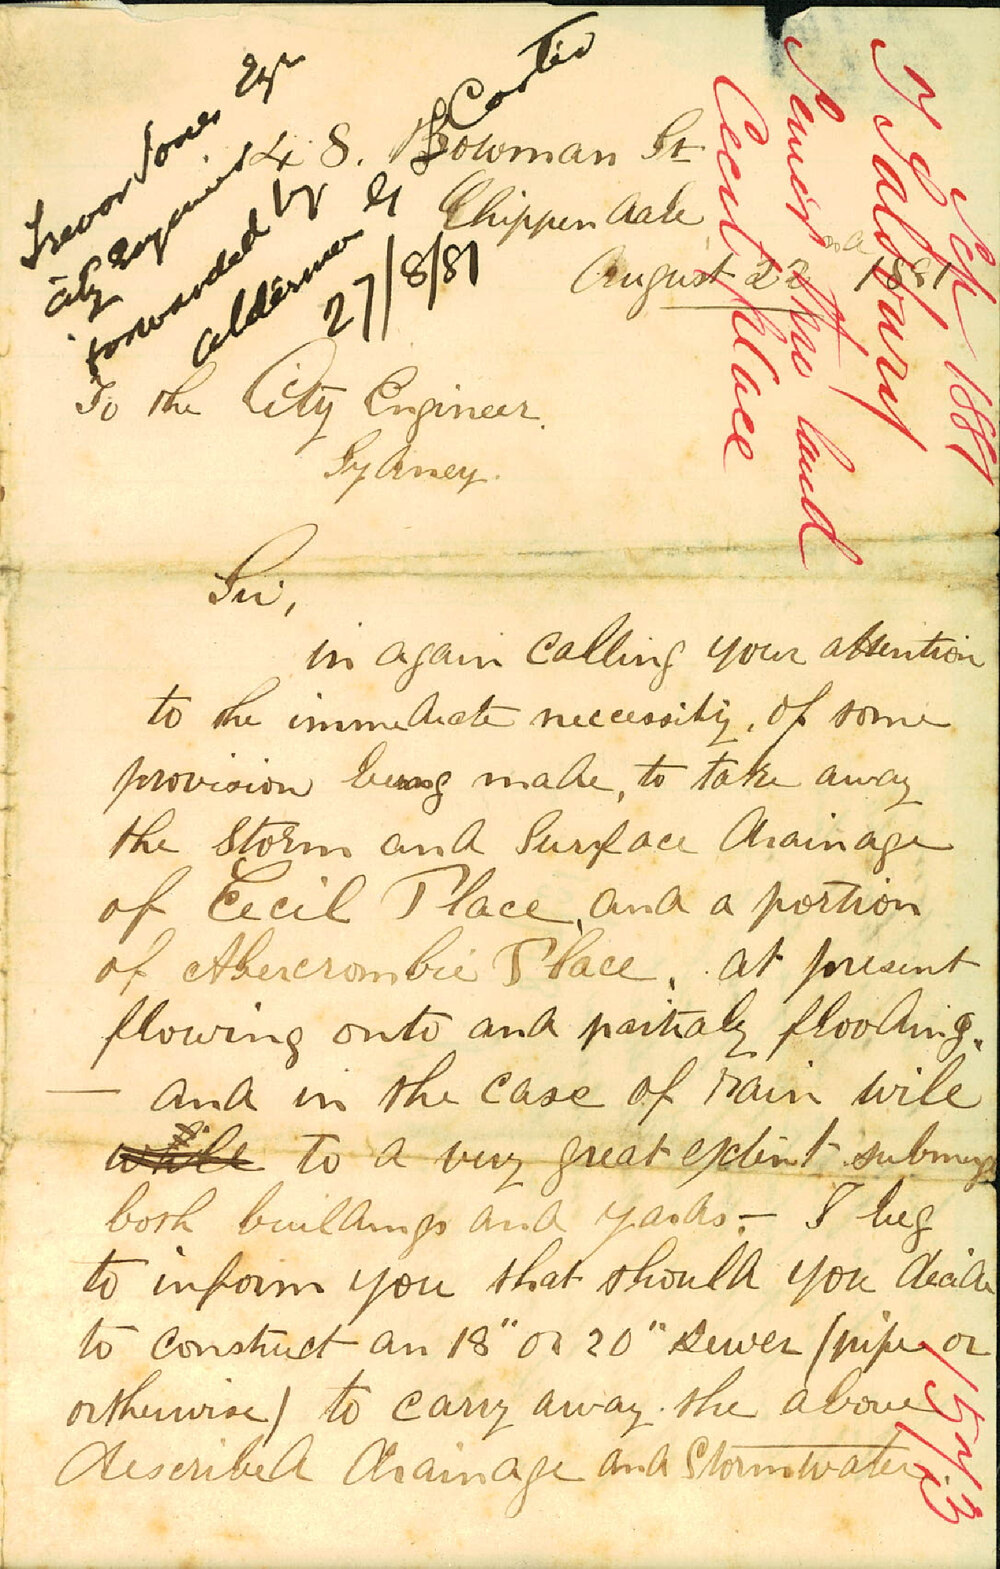 Trevor Jones Esqr
City Engineer
forwarded by
alderman G F Carter
27/8/81
48. Bowman St
Chippendale
August 22nd 1881
Sep 1881
T J Salsbury
Sewer thro land
Cecil place
To the City Engineer.
Sydney.
Sir,
in again calling your attention
to the immediate necessity, of some
provision being made, to take away
the Storm and Surface drainage
of Cecil Place, and a portion
of Abercrombie Place, at present
flowing onto and partialy flooding.
— and in the case of rain will
to a very great extent submerge
both buildings and yards. — I beg
to inform you that should you decide
to construct an 18" or 20" sewer (pipe or
otherwise) to carry away the above
described drainage and Stormwater.